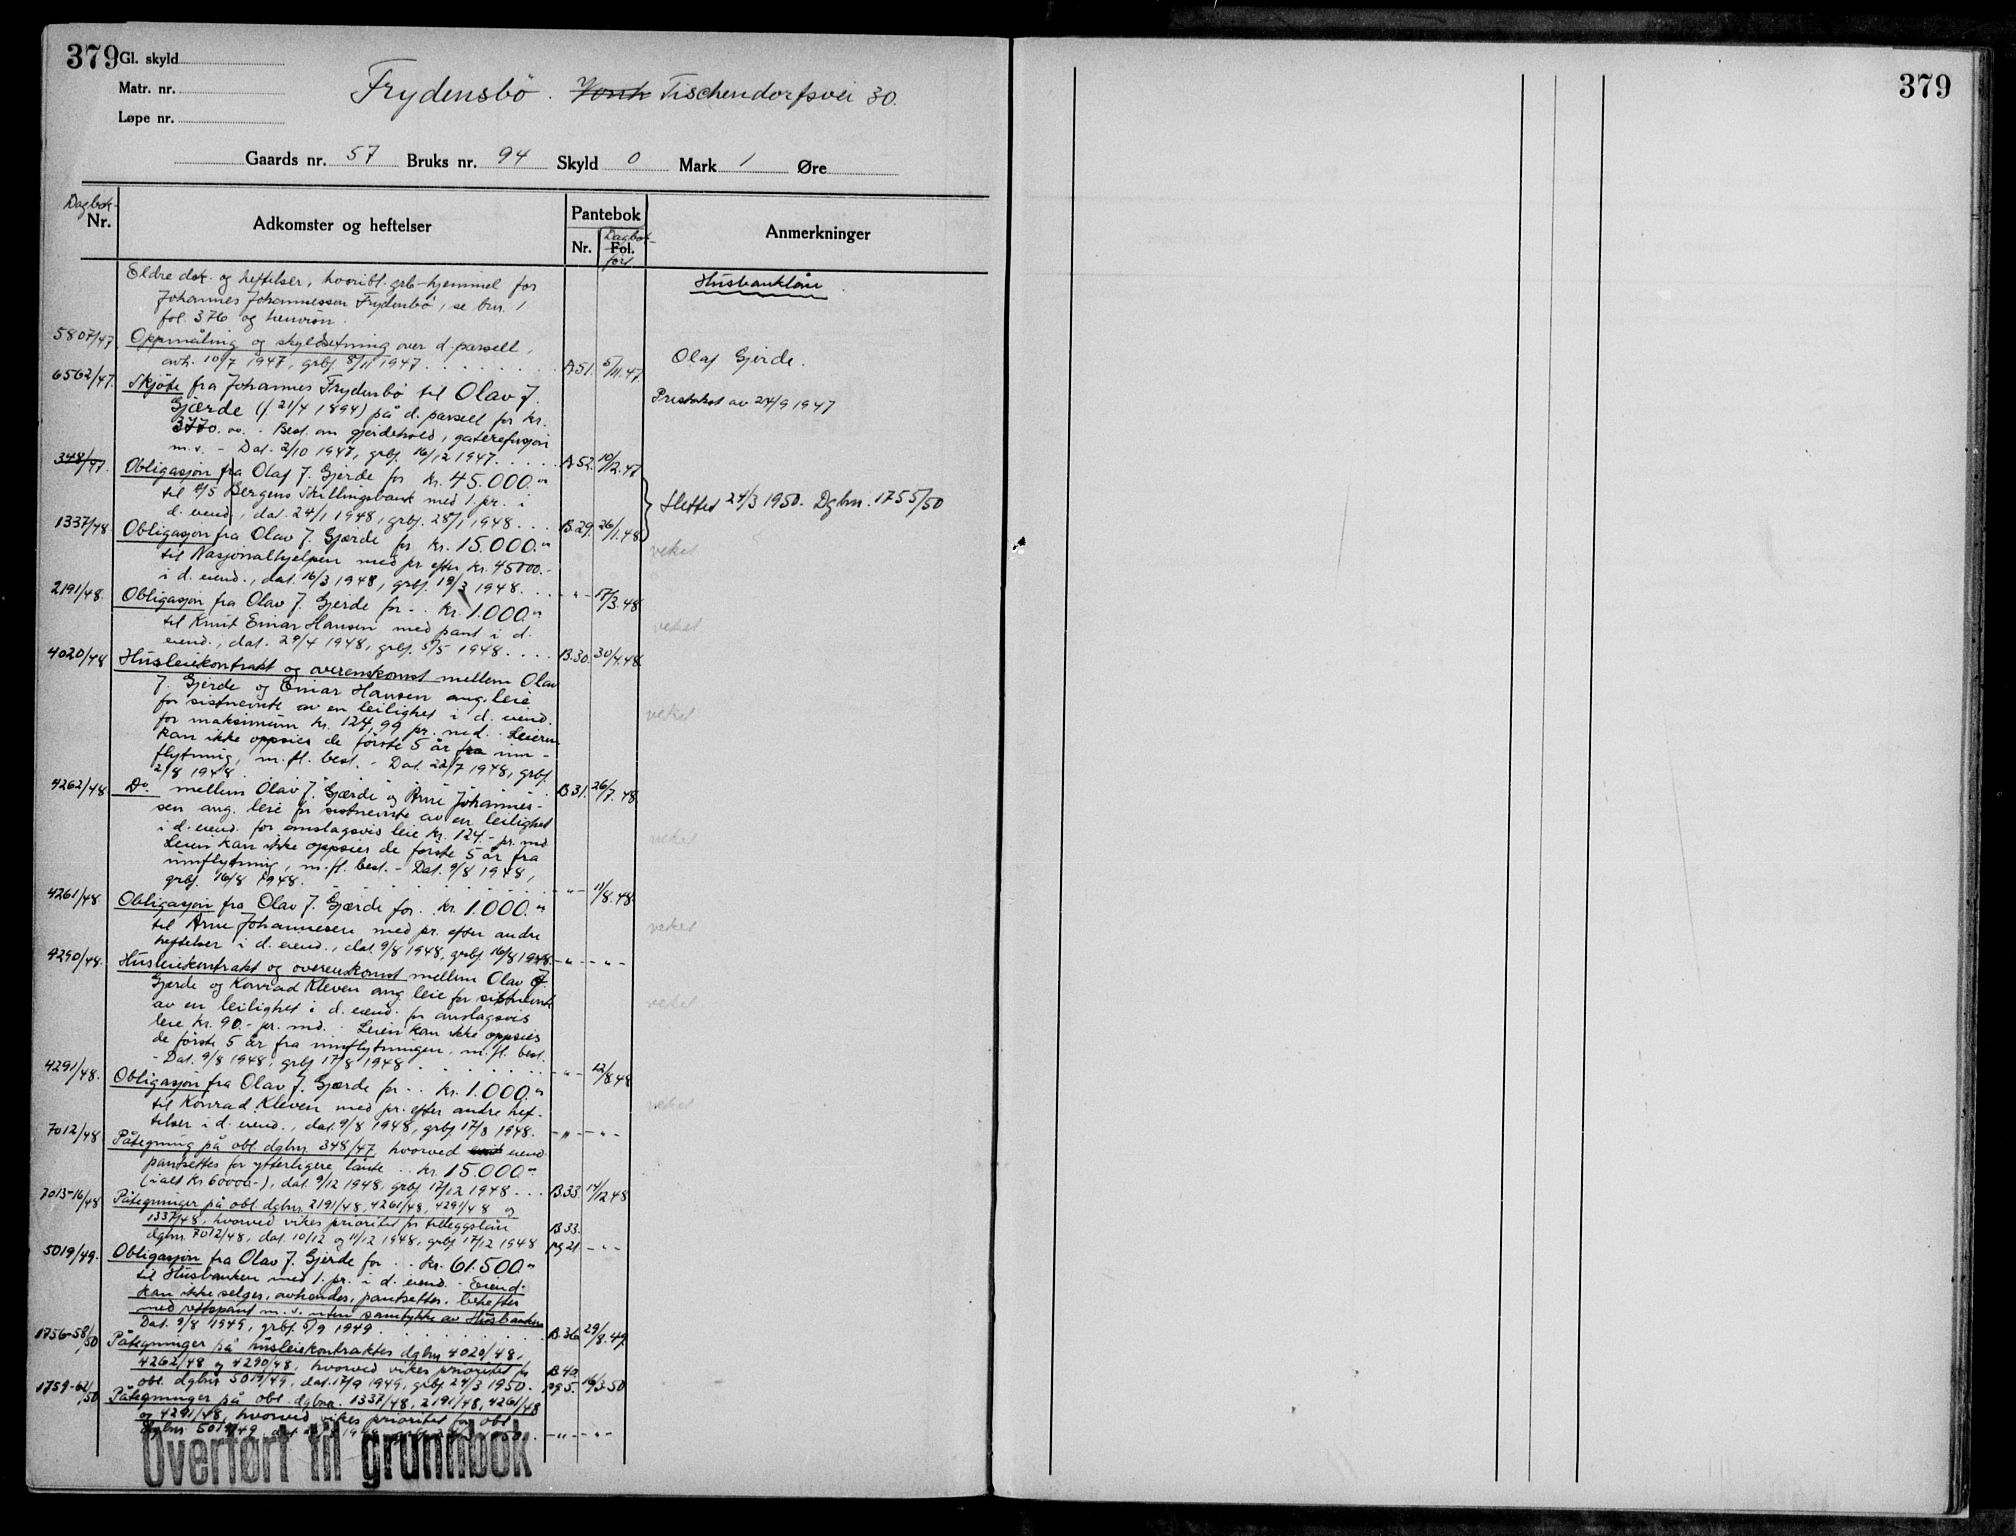 379 Gl. skyld
Matr. nr.
Løpe nr.
Frydensbö. Tischendorfsvei 30.
Gaards nr. 57 Bruks nr. 94 Skyld 0 Mark 1 Øre
Dagbok-
Nr.
Adkomster og heftelser
Pantebok
Nr. Fol. Dagbok-
ført
Anmerkninger
Eldre dok. og heftelser, hvoribl. grb-hjemmel for
Johannes Johannessen Frydenbö, se bnr. 1
fol. 376 og henvisn.
Husbanklån
5807/47 Oppmåling og skyldsetning over d. parsell,
avh. 10/7 1947, grbf. 8/11 1947 A51. 5/11.47
Olaf Gjerde.
6562/47. Skjöte fra Johannes Frydensbö til Olav J.
Gjærde (f. 21/4 1894) på d. parsell for kr.
3770.00. - Best. om gjerdehold, gaterefusjon
m.v. - Dat. 2/10 1947, grbf. 16/12 1947 A52. 10/12.47
av 24/9 1947
348/47. Obligasjon fra Olaf J. Gjerde for kr. 45.000.-
til A/S Bergens Skillingsbank med 1. pr. i
d. eiend., dat. 24/1 1948, grbf. 28/1 1948 B.29. 26/1.48
Slettet 24/3 1950. Dgbnr. 1755/50
1337/48 Obligasjon fra Olav J. Gjærde for kr. 15.000.-
til Nasjonalhjelpen med pr. efter kr. 45000.-
i d. eiend., dat. 16/3 1948, grbf. 19/3 1948. - " - 17/3.48
veket
2191/48. Obligasjon fra Olav J. Gjerde for kr. 1.000.-
til Knut Einar Hansen med pant i d.
eiend., dat. 29/4 1948, grbf. 5/5 1948 B.30. 30/4.48.
veket
4020/48 Husleiekontrakt og overenskomst mellem Olav
J. Gjerde og Einar Hansen ang. leie
for sistnevnte av en leilighet i d. eiend.
for maksimum kr. 124,99 pr. md. - Leieren
kan ikke oppsies de förste 5 år fra inn-
flytning, m. fl. best. - Dat. 22/7 1948, grbf.
2/8 1948. B.31. 26/7.48
veket
4262/48 Do. mellem Olav J. Gjærde og Arne Johannes-
sen ang. leie for sistnevnte av en leilighet
i d. eiend. for anslagsvis leie kr. 124.- pr. md.
Leien kan ikke oppsies de förste 5 år fra
innflytning, m. fl. best. - Dat. 9/8 1948,
grbf. 16/8 1948. - " - 11/8.48.
veket
4261/48 Obligasjon fra Olav J. Gjærde for kr. 1.000.-
til Arne Johannessen med pr. efter andre
heftelser i d. eiend., dat. 9/8 1948, grbf. 16/8 1948. - " - - " -
veket
4290/48. Husleiekontrakt og overenskomst mellem Olav J.
Gjærde og Konrad Kleven ang. leie for sistnevnte
av en leilighet i d. eiend. for anslagsvis
leie kr. 90.- pr. md. - Leien kan ikke oppsies
de förste 5 år fra innflytningen, m. fl. best.
- Dat. 9/8 1948, grbf. 17/8 1948 - " - 12/8.48
veket
4291/48. Obligasjon fra Olav J. Gjærde for kr. 1.000.-
til Konrad Kleven med pr. efter andre hef-
telser i d. eiend., dat. 9/8 1948, grbf. 17/8 1948. - " - - " -
veket
7012/48 Påtegning på obl. dgbnr. 348/47, hvorved eiend.
pantsettes for ytterligere lånte kr. 15.000.-
(ialt kr. 60000.-), dat. 9/12 1948, grbf. 17/12 1948 B.33. 14/12.48
7013-16/48 Påtegninger på obl. dgbnr. 2191/48, 4261/48, 4291/48 og
1337/48, hvorved vikes prioritet for tilleggslån B.33.
dgbnr. 7012/48, dat. 10/12 og 11/12 1948, grbf. 17/12 1948 pg 21 - " -
5019/49. Obligasjon fra Olav J. Gjerde for kr. 61.500.-
til Husbanken med 1. pr. i d. eiend. - Eiend.
kan ikke selges, avhendes, pantsettes, beheftes
med rettspant m.v. uten samtykke av Husbanken.
Dat. 9/8 1949, grbf. 5/9 1949 B.36 29/8.49.
1756-58/50 Påtegninger på husleiekontrakter dgbnr. 4020/48,
4262/48 og 4290/48, hvorved vikes prioritet for B.40.
obl. dgbnr. 5019/49, dat. 17/9 1949, grbf. 24/3 1950. pg 5. 16/3.50
1759-62/50 Påtegninger på obl. dgbnr. 1337/48, 2191/48, 4261/48
og 4291/48, hvorved vikes prioritet for obl.
dgbnr. 5019/49, - " - - " -
Overført til grunnbok
379